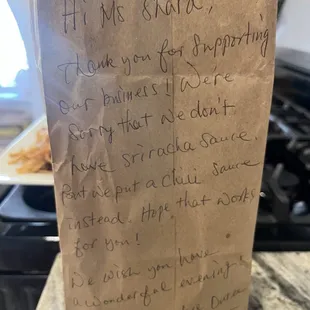 Hi Ms Shara,
Thank you for supporting
our business! We're
sorry that we don't
have sriracha sauce.
But we put a chili sauce
instead. Hope that works
for you!
We wish you have
a wonderful evening!